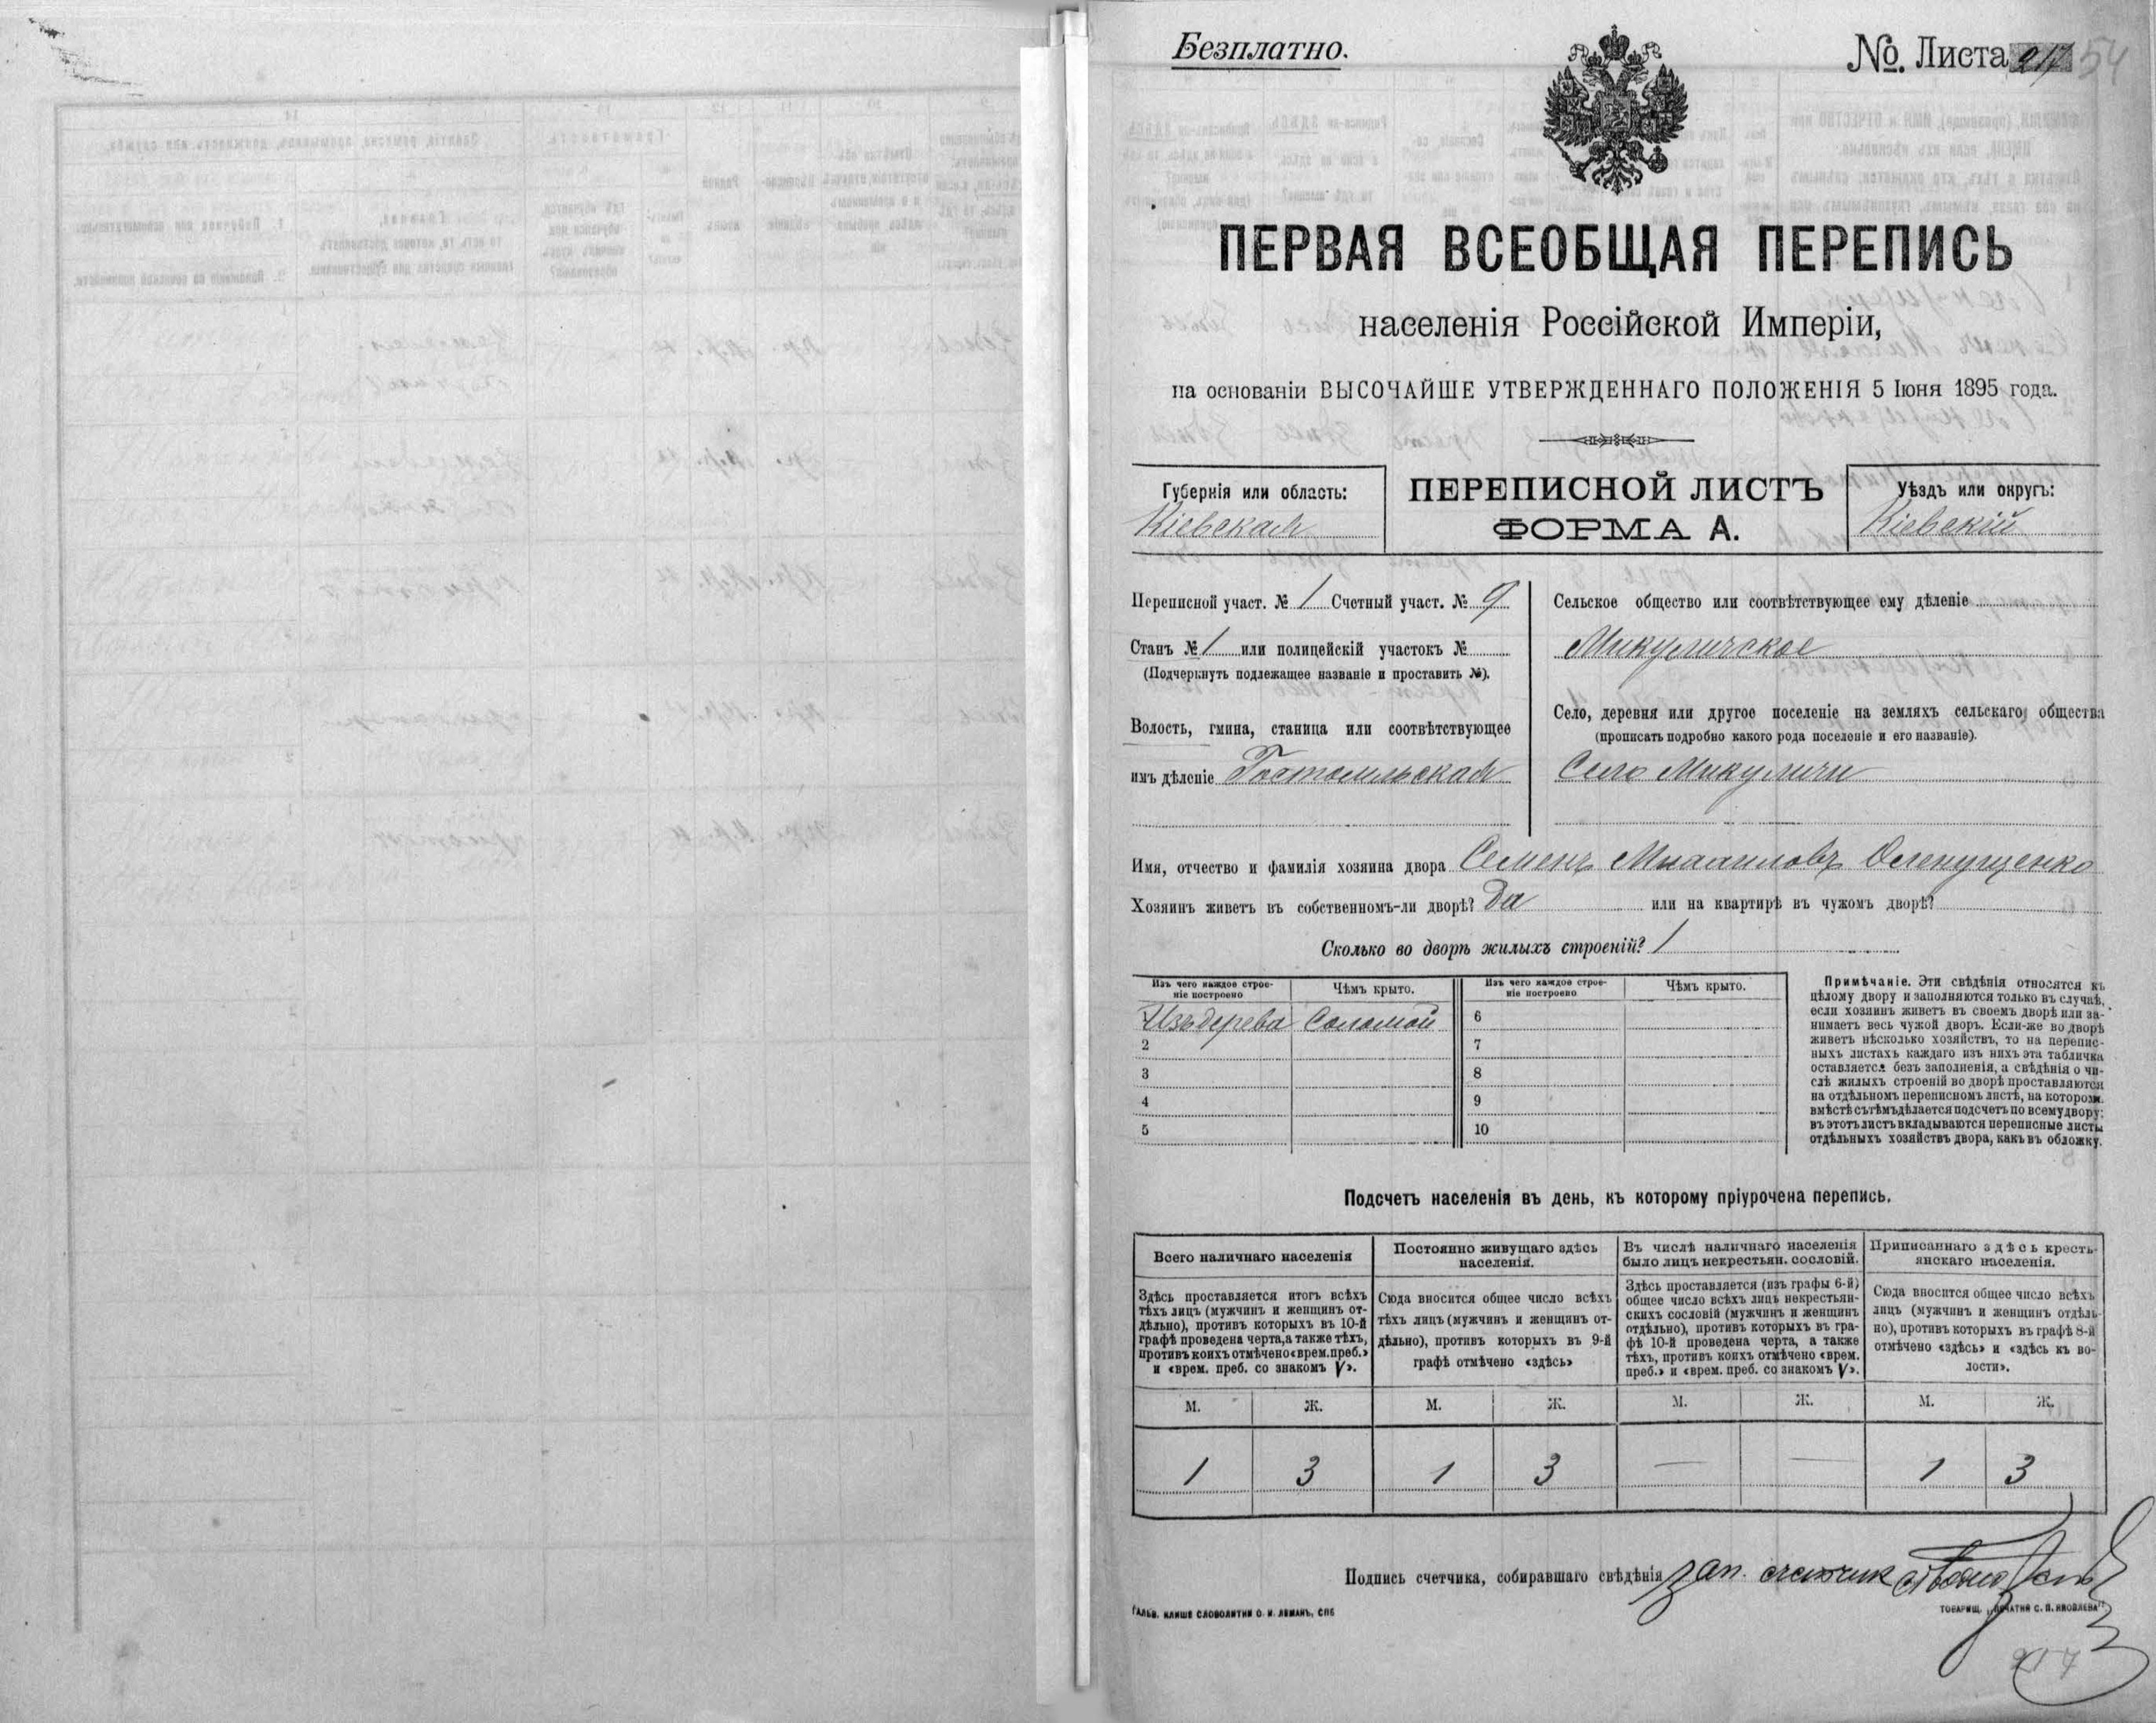 Безплатно.
№. Листа 217 54
ПЕРВАЯ ВСЕОБЩАЯ ПЕРЕПИСЬ
населенія Россійской Имперіи,
на основаніи ВЫСОЧАЙШЕ УТВЕРЖДЕННАГО ПОЛОЖЕНІЯ 5 Іюня 1895 года.
Губернія или область:
Кіевская
ПЕРЕПИСНОЙ ЛИСТЪ
ФОРМА А.
Уѣздъ или округъ:
Кіевскій
Переписной участ. № 1 Счетный участ. № 9
Станъ № 1 или полицейскій участокъ №
(Подчеркнуть подлежащее названіе и проставить №).
Волость, гмина, станица или соотвѣтствующее
имъ дѣленіе Гостомельская
Сельское общество или соотвѣтствующее ему дѣленіе
Микуличское
Село, деревня или другое поселеніе на земляхъ сельскаго общества
(прописать подробно какого рода поселеніе и его названіе).
Село Микуличи
Имя, отчество и фамилія хозяина двора Семенъ Михаиловъ Оленущенко
Хозяинъ живетъ въ собственномъ-ли дворѣ? Да или на квартирѣ въ чужомъ дворѣ?
Сколько во дворѣ жилыхъ строеній? 1
Изъ чего каждое строе-
ніе построено
Чѣмъ крыто.
Изъ чего каждое строе-
ніе построено
Чѣмъ крыто.
Изъ дерева Соломой 6
2 7
3 8
4 9
5 10
Примѣчаніе. Эти свѣдѣнія относятся къ
цѣлому двору и заполняются только въ случаѣ,
если хозяинъ живетъ въ своемъ дворѣ или за-
нимаетъ весь чужой дворъ. Если-же во дворѣ
живетъ нѣсколько хозяйствъ, то на перепис-
ныхъ листахъ каждаго изъ нихъ эта табличка
оставляется безъ заполненія, а свѣдѣнія о чи-
слѣ жилыхъ строеній во дворѣ проставляются
на отдѣльномъ переписномъ листѣ, на котором
вмѣстѣ съ тѣмъ дѣлается подсчетъ по всему двору;
въ этотъ листъ вкладываются переписные листы
отдѣльныхъ хозяйствъ двора, какъ въ обложку.
Подсчетъ населенія въ день, къ которому пріурочена перепись.
Всего наличнаго населенія
Здѣсь проставляется итогъ всѣхъ
тѣхъ лицъ (мужчинъ и женщинъ от-
дѣльно), противъ которыхъ въ 10-й
графѣ проведена черта, а также тѣхъ,
противъ коихъ отмѣчено «врем. преб.»
и «врем. преб. со знакомъ V».
Постоянно живущаго здѣсь
населенія.
Сюда вносится общее число всѣхъ
тѣхъ лицъ (мужчинъ и женщинъ от-
дѣльно), противъ которыхъ въ 9-й
графѣ отмѣчено «здѣсь»
Въ числѣ наличнаго населенія
было лицъ некрестьян. сословій.
Здѣсь проставляется (изъ графы 6-й)
общее число всѣхъ лицъ некрестьян-
скихъ сословій (мужчинъ и женщинъ
отдѣльно), противъ которыхъ въ гра-
фѣ 10-й проведена черта, а также
тѣхъ, противъ коихъ отмѣчено «врем.
преб.» и «врем. преб. со знакомъ V».
Приписаннаго здѣсь кресть-
янскаго населенія.
Сюда вносится общее число всѣхъ
лицъ (мужчинъ и женщинъ отдѣль-
но), противъ которыхъ въ графѣ 8-й
отмѣчено «здѣсь» и «здѣсь къ во-
лости».
М. Ж. М. Ж. М. Ж. М. Ж.
1 3 1 3 — — 1 3
Подпись счетчика, собиравшаго свѣдѣнія зап. счетчик
ГАЛЬВ. КЛИШЕ СЛОВОЛИТНИ О. И. ЛЕМАНЪ, СПБ
ТОВАРИЩ. „ПЕЧАТНЯ С. П. ЯКОВЛЕВА"
217